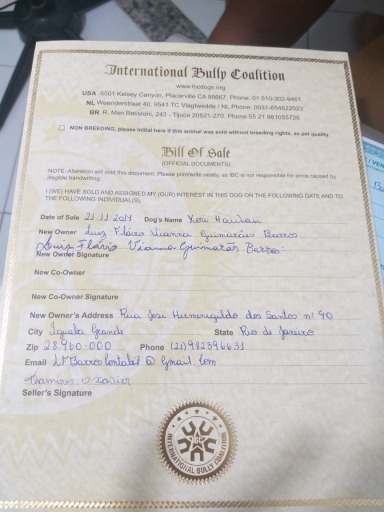 International Bully Coalition
www.ibcdogs.org
USA 6501 Kelsey Canyon, Placerville CA 95667, Phone: 01 515-302-9461
NL Weenderstraat 40, 9541 TC Vlagtwedde / NL Phone: 0031-654622023
BR R. Men Batisroni, 243 - Tijuca 20521-270, Phone 55 21 981055725
NON BREEDING, please initial here if this animal was sold without breeding rights, as pet quality.
Bill Of Sale
(OFFICIAL DOCUMENTS)
NOTE: Alteration will void this document. Please print/write neatly, as IBC is not responsible for errors caused by
illegible handwriting.
I (WE) HAVE SOLD AND ASSIGNED MY (OUR) INTEREST IN THIS DOG ON THE FOLLOWING DATE AND TO
THE FOLLOWING INDIVIDUAL(S).
Date of Sale 21.11.2017 Dog's Name
New Owner Luiz Flávio Vianna Guimarães Barros
Luiz Flávio Vianna Guimarães Barros
New Owner Signature
New Co-Owner
New Co-Owner Signature
New Owner's Address Rua José Hermenegildo dos Santos nº 90
City Iguaba Grande State Rio de Janeiro
Zip 28960-000 Phone (21) 982396631
Email @ Gmail.com
Thamiris O. Xavier
Seller's Signature
INTERNATIONAL BULLY COALITION